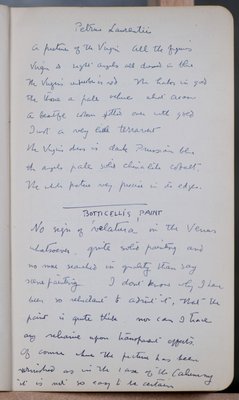 Petrus Laurentii
A picture of the Virgin All the figures
Virgin & eight angels all around a throne
The Virgin's is red. The haloes in gold
The throne a pale
a beautiful colour over with gold
Just a very little terravert
The Virgin's dress is dark Prussian blue
the angels pale cobalt.
The whole picture very precise in its edges.
BOTTICELLI'S PAINT
No sign of velatura in the Venus
whatsoever, quite solid painting and
no more searched in quality than say
scene painting. I dont know why I have
been so reluctant to admit it, that the
paint is quite thick nor can I trace
any reliance upon transparent effects.
Of course where the picture has been
varnished as in the case of the Calumny
it is not so easy to be certain